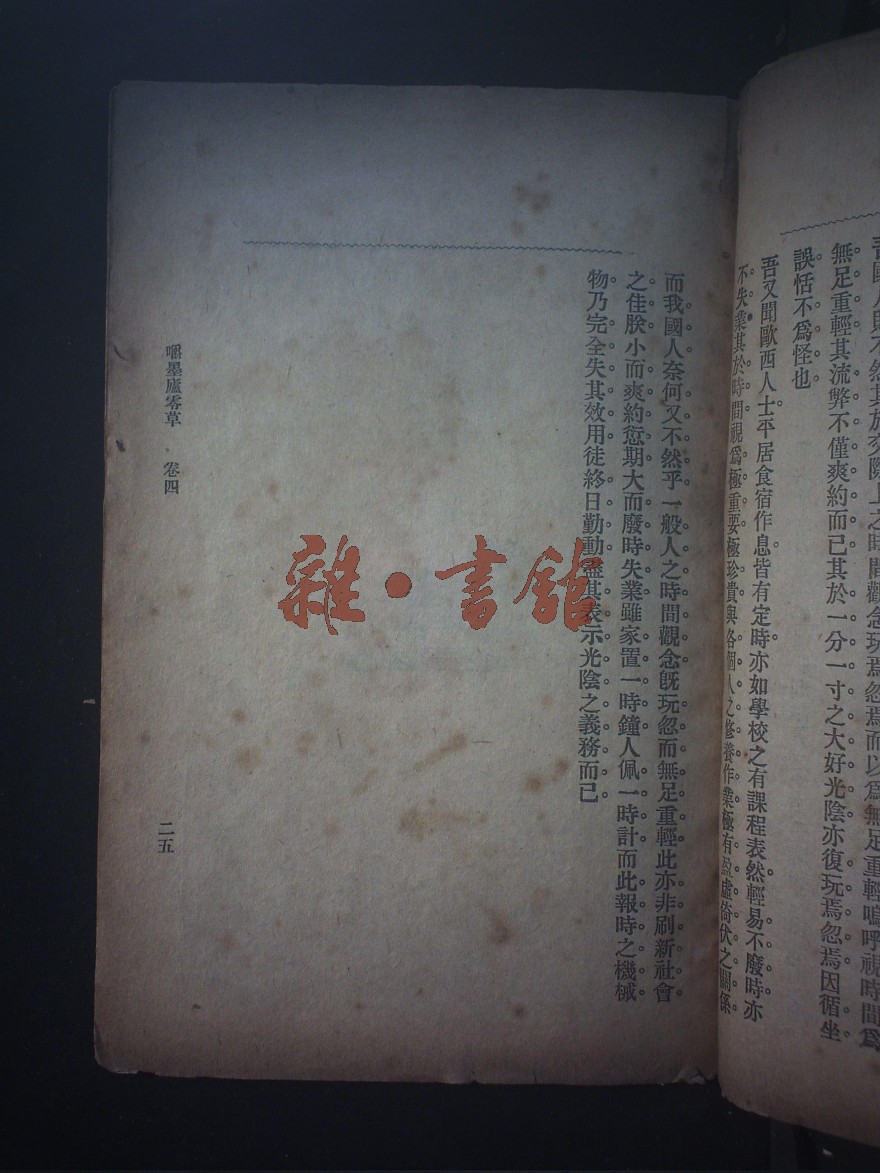 吾國人則不然其於交際上之時間觀念玩焉忽焉而以爲無足重輕嗚呼視時間爲
無足重輕其流弊不僅爽約而已其於一分一寸之大好光陰亦復玩焉忽焉因循坐
誤恬不爲怪也
吾又聞歐西人士平居食宿作息皆有定時亦如學校之有課程表然輕易不廢時亦
不失業其於時間視爲極重要極珍貴與各個人之修養作業極有盈虛倚伏之關係
而我國人奈何又不然乎一般人之時間觀念旣玩忽而無足重輕此亦非刷新社會
之佳朕小而爽約愆期大而廢時失業雖家置一時鐘人佩一時計而此報時之機械
物乃完全失其效用徒終日勤動盡其表示光陰之義務而已
嚼墨廬零草 卷四
二五
雜·書館